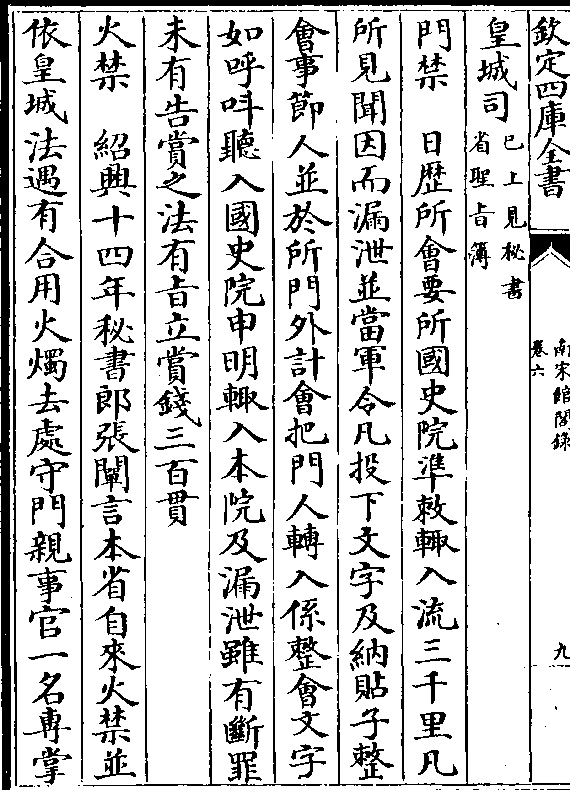 欽定四庫全書
南宋館閣錄
卷六
九
皇城司
已上見秘書
省聖旨簿
門禁　日歴所會要所國史院準敕輙入流三千里凡
所見聞因而漏泄並當軍令凡投下文字及納貼子整
會事節人並於所門外計會把門人轉入係整會文字
如呼呌聽入國史院申明輙入本院及漏泄雖有斷罪
未有告賞之法有旨立賞錢三百貫
火禁　紹興十四年秘書郎張闡言本省自來火禁並
依皇城法遇有合用火燭去處守門親事官一名専掌